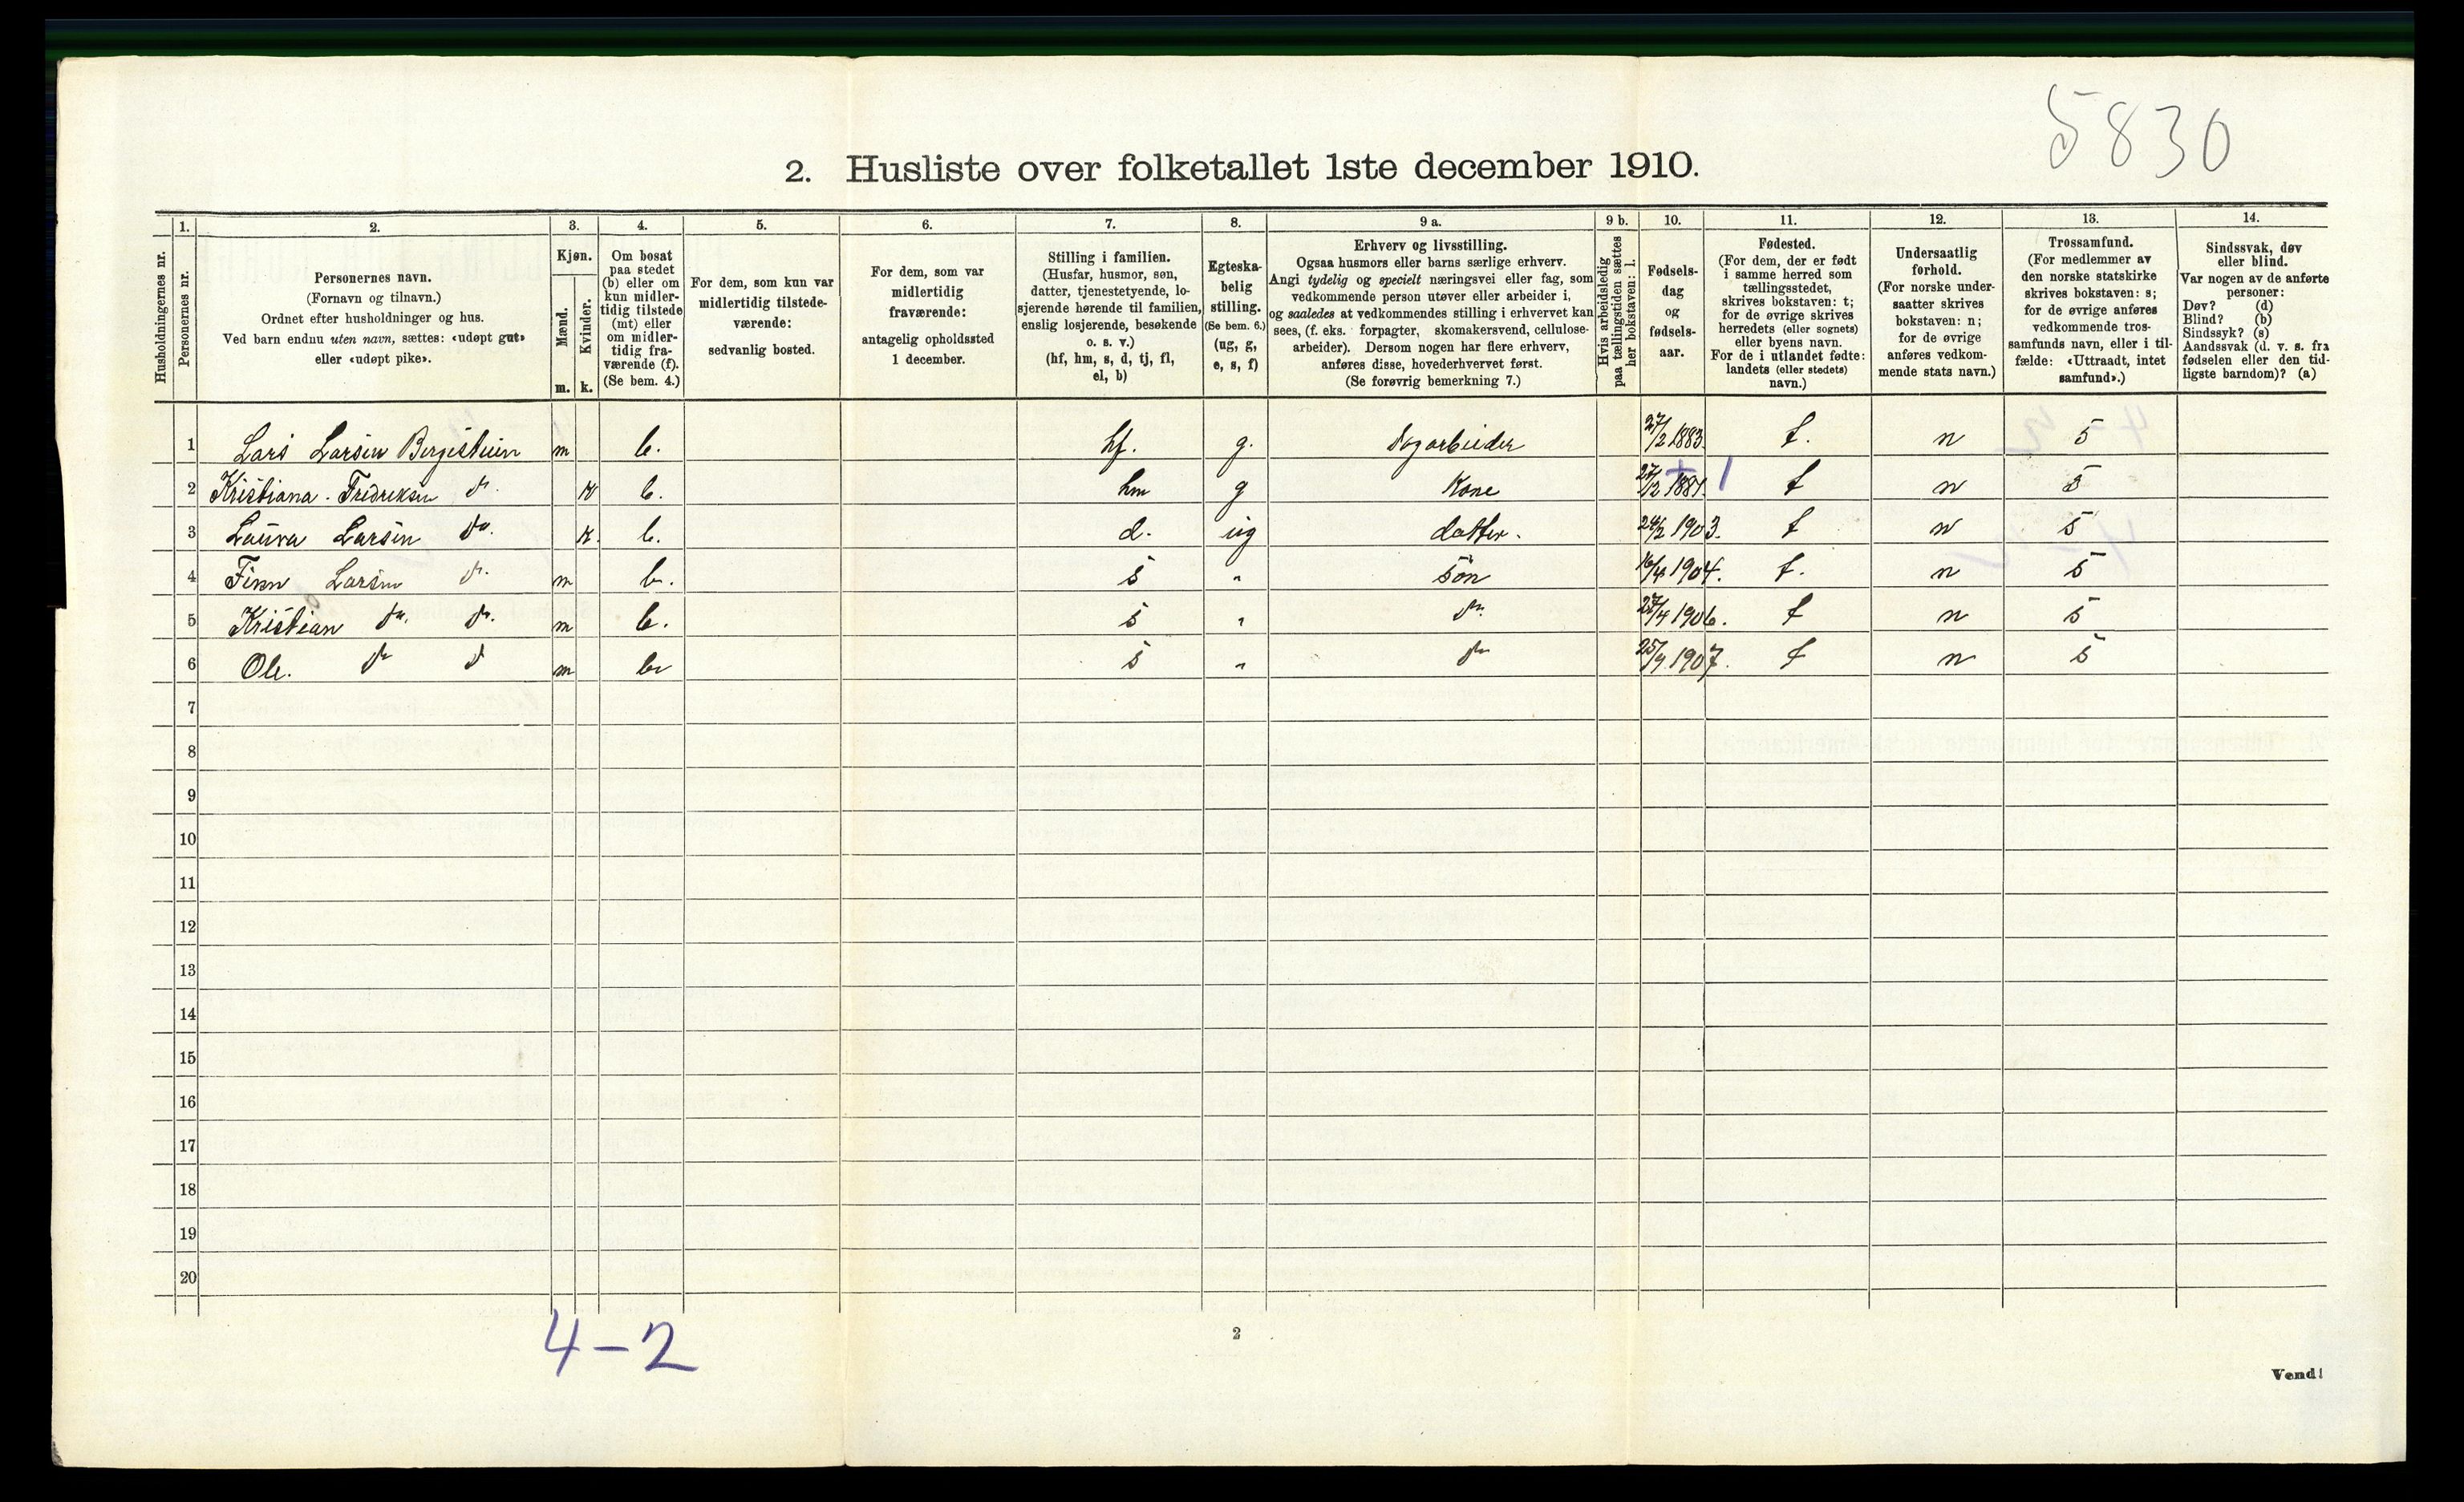 5830
2. Husliste over folketallet 1ste december 1910.
1. 2. 3. 4. 5. 6. 7. 8. 9 a. 9 b. 10. 11. 12. 13. 14.
Husholdningernes nr.
Personernes nr.
Personernes navn.
(Fornavn og tilnavn.)
Ordnet efter husholdninger og hus.
Ved barn endnu uten navn, sættes: «udøpt gut»
eller «udøpt pike».
Kjøn.
Mænd.
m.
Kvinder.
k.
Om bosat
paa stedet
(b) eller om
kun midler-
tidig tilstede
(mt) eller
om midler-
tidig fra-
værende (f).
(Se bem. 4.)
For dem, som kun var
midlertidig tilstede-
værende:
sedvanlig bosted.
For dem, som var
midlertidig
fraværende:
antagelig opholdssted
1 december.
Stilling i familien.
(Husfar, husmor, søn,
datter, tjenestetyende, lo-
sjerende hørende til familien,
enslig losjerende, besøkende
o. s. v.)
(hf, hm, s, d, tj, fl,
el, b)
Egteska-
belig
stilling.
(Se bem. 6.)
(ug, g,
e, s, f)
Erhverv og livsstilling.
Ogsaa husmors eller barns særlige erhverv.
Angi tydelig og specielt næringsvei eller fag, som
vedkommende person utøver eller arbeider i,
og saaledes at vedkommendes stilling i erhvervet kan
sees, (f. eks. forpagter, skomakersvend, cellulose-
arbeider). Dersom nogen har flere erhverv,
anføres disse, hovederhvervet først.
(Se forøvrig bemerkning 7.)
Hvis arbeidsledig
paa tællingstiden sættes
her bokstaven: l.
Fødsels-
dag
og
fødsels-
aar.
Fødested.
(For dem, der er født
i samme herred som
tællingsstedet,
skrives bokstaven: t;
for de øvrige skrives
herredets (eller sognets)
eller byens navn.
For de i utlandet fødte:
landets (eller stedets)
navn.)
Undersaatlig
forhold.
(For norske under-
saatter skrives
bokstaven: n;
for de øvrige
anføres vedkom-
mende stats navn.)
Trossamfund.
(For medlemmer av
den norske statskirke
skrives bokstaven: s;
for de øvrige anføres
vedkommende tros-
samfunds navn, eller i til-
fælde: «Uttraadt, intet
samfund».)
Sindssvak, døv
eller blind.
Var nogen av de anførte
personer:
Døv? (d)
Blind? (b)
Sindssyk? (s)
Aandssvak (d. v. s. fra
fødselen eller den tid-
ligste barndom)? (a)
1 Lars Larsen Bergestuen m b. hf. g. Sogarbeider 27/2 1883. t. n s
2 Kristiana Fredriksen do. k b. hm g Kone 27/12 1881 t n s
3 Laura Larsen do. k. b. d. ug datter. 24/2 1903. t n s
4 Finn Larsen do. m b. s " søn 16/4 1904. t. n s
5 Kristian do. do. m b. s " do. 27/4 1906. t n s
6 Ole. do do m b s " do 25/9 1907. t n s
7
8
9
10
11
12
13
14
15
16
17
18
19
20
4-2
2
Vend!